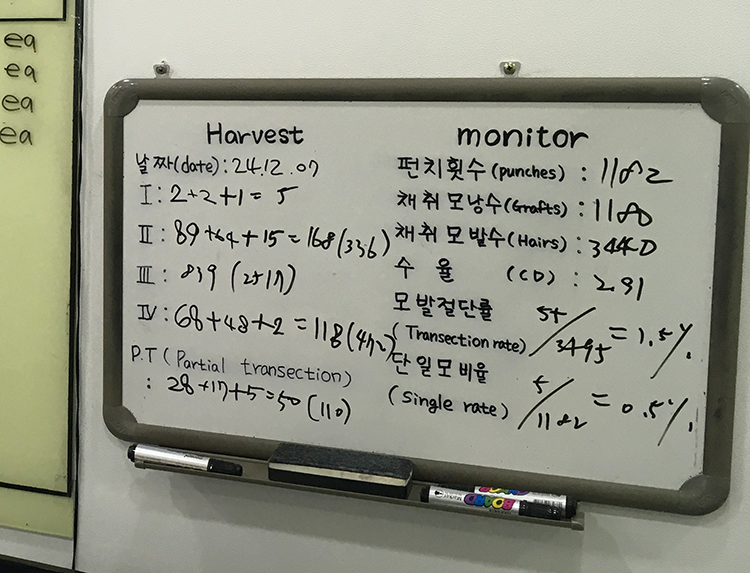 ea
ea
ea
ea
Harvest
날짜(date): 24.12.07
I: 2+2+1=5
II: 89+64+15=168(336)
III: 839 (2517)
IV: 68+48+2=118(472)
P.T (Partial transection)
: 28+17+5=50 (110)
monitor
펀치횟수(punches) : 1182
채취 모낭수(Grafts): 1180
채취 모발수(Hairs): 3440
수 율 (CD) : 2.91
모발절단률
(Transection rate) 55/3495 = 1.5%
단일모비율
(Single rate) 5/1182 = 0.5%
BOARD